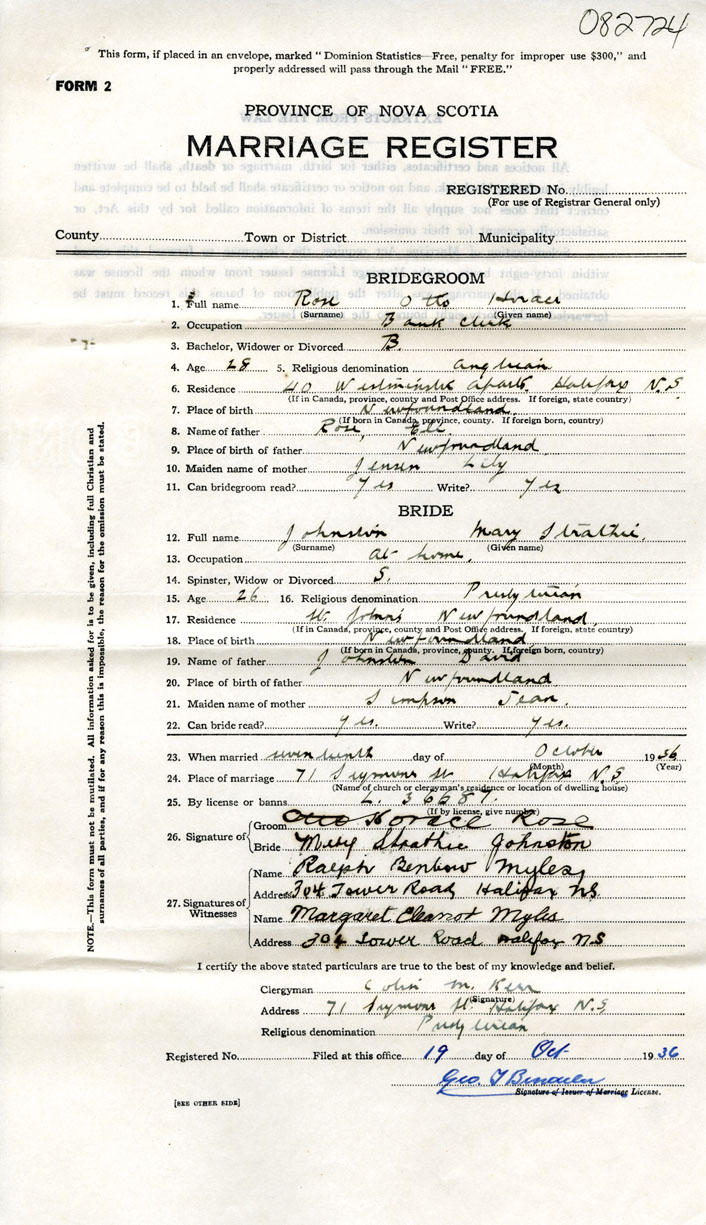 082724
This form, if placed in an envelope, marked "Dominion Statistics—Free, penalty for improper use $300," and
properly addressed will pass through the Mail "FREE."
FORM 2
PROVINCE OF NOVA SCOTIA
MARRIAGE REGISTER
REGISTERED No.
(For use of Registrar General only)
County Town or District Municipality
BRIDEGROOM
1. Full name Rose Otto Horace
(Surname) (Given name)
2. Occupation Bank Clerk
3. Bachelor, Widower or Divorced B.
4. Age 28 5. Religious denomination Anglican
6. Residence 40 Westminster Aparts Halifax N.S
(If in Canada, province, county and Post Office address. If foreign, state country)
7. Place of birth Newfoundland
(If born in Canada, province, county. If foreign born, country)
8. Name of father Rose, Eli
9. Place of birth of father Newfoundland
10. Maiden name of mother Jensen Lily
11. Can bridegroom read? Yes Write? Yes
BRIDE
12. Full name Johnston Mary Strathie
(Surname) (Given name)
13. Occupation at home.
14. Spinster, Widow or Divorced S.
15. Age 26 16. Religious denomination Presbyterian
17. Residence St. John's Newfoundland
(If in Canada, province, county and Post Office address. If foreign, state country)
18. Place of birth Newfoundland
(If born in Canada, province, county. If foreign born, country)
19. Name of father Johnston David
20. Place of birth of father Newfoundland
21. Maiden name of mother Simpson Jean.
22. Can bride read? Yes. Write? Yes.
23. When married seventeenth day of October 1936
(Month) (Year)
24. Place of marriage 71 Seymour St Halifax N.S
(Name of church or clergyman's residence or location of dwelling house)
25. By license or banns L. 36687.
(If by license, give number)
26. Signature of
Groom Otto Horace Rose
Bride Mary Strathie Johnston
27. Signatures of Witnesses
Name Ralph Benbow Myles
Address 304 Tower Road Halifax NS
Name Margaret Eleanor Myles
Address 304 Tower Road Halifax NS
I certify the above stated particulars are true to the best of my knowledge and belief.
Clergyman Colin M. Kerr
(Signature)
Address 71 Seymour St. Halifax N.S
Religious denomination Presbyterian
Registered No. Filed at this office 19 day of Oct 1936
Geo. T
Signature of Issuer of Marriage License.
[SEE OTHER SIDE]
NOTE.—This form must not be mutilated. All information asked for is to be given, including full Christian and
surnames of all parties, and if for any reason this is impossible, the reason for the omission must be stated.